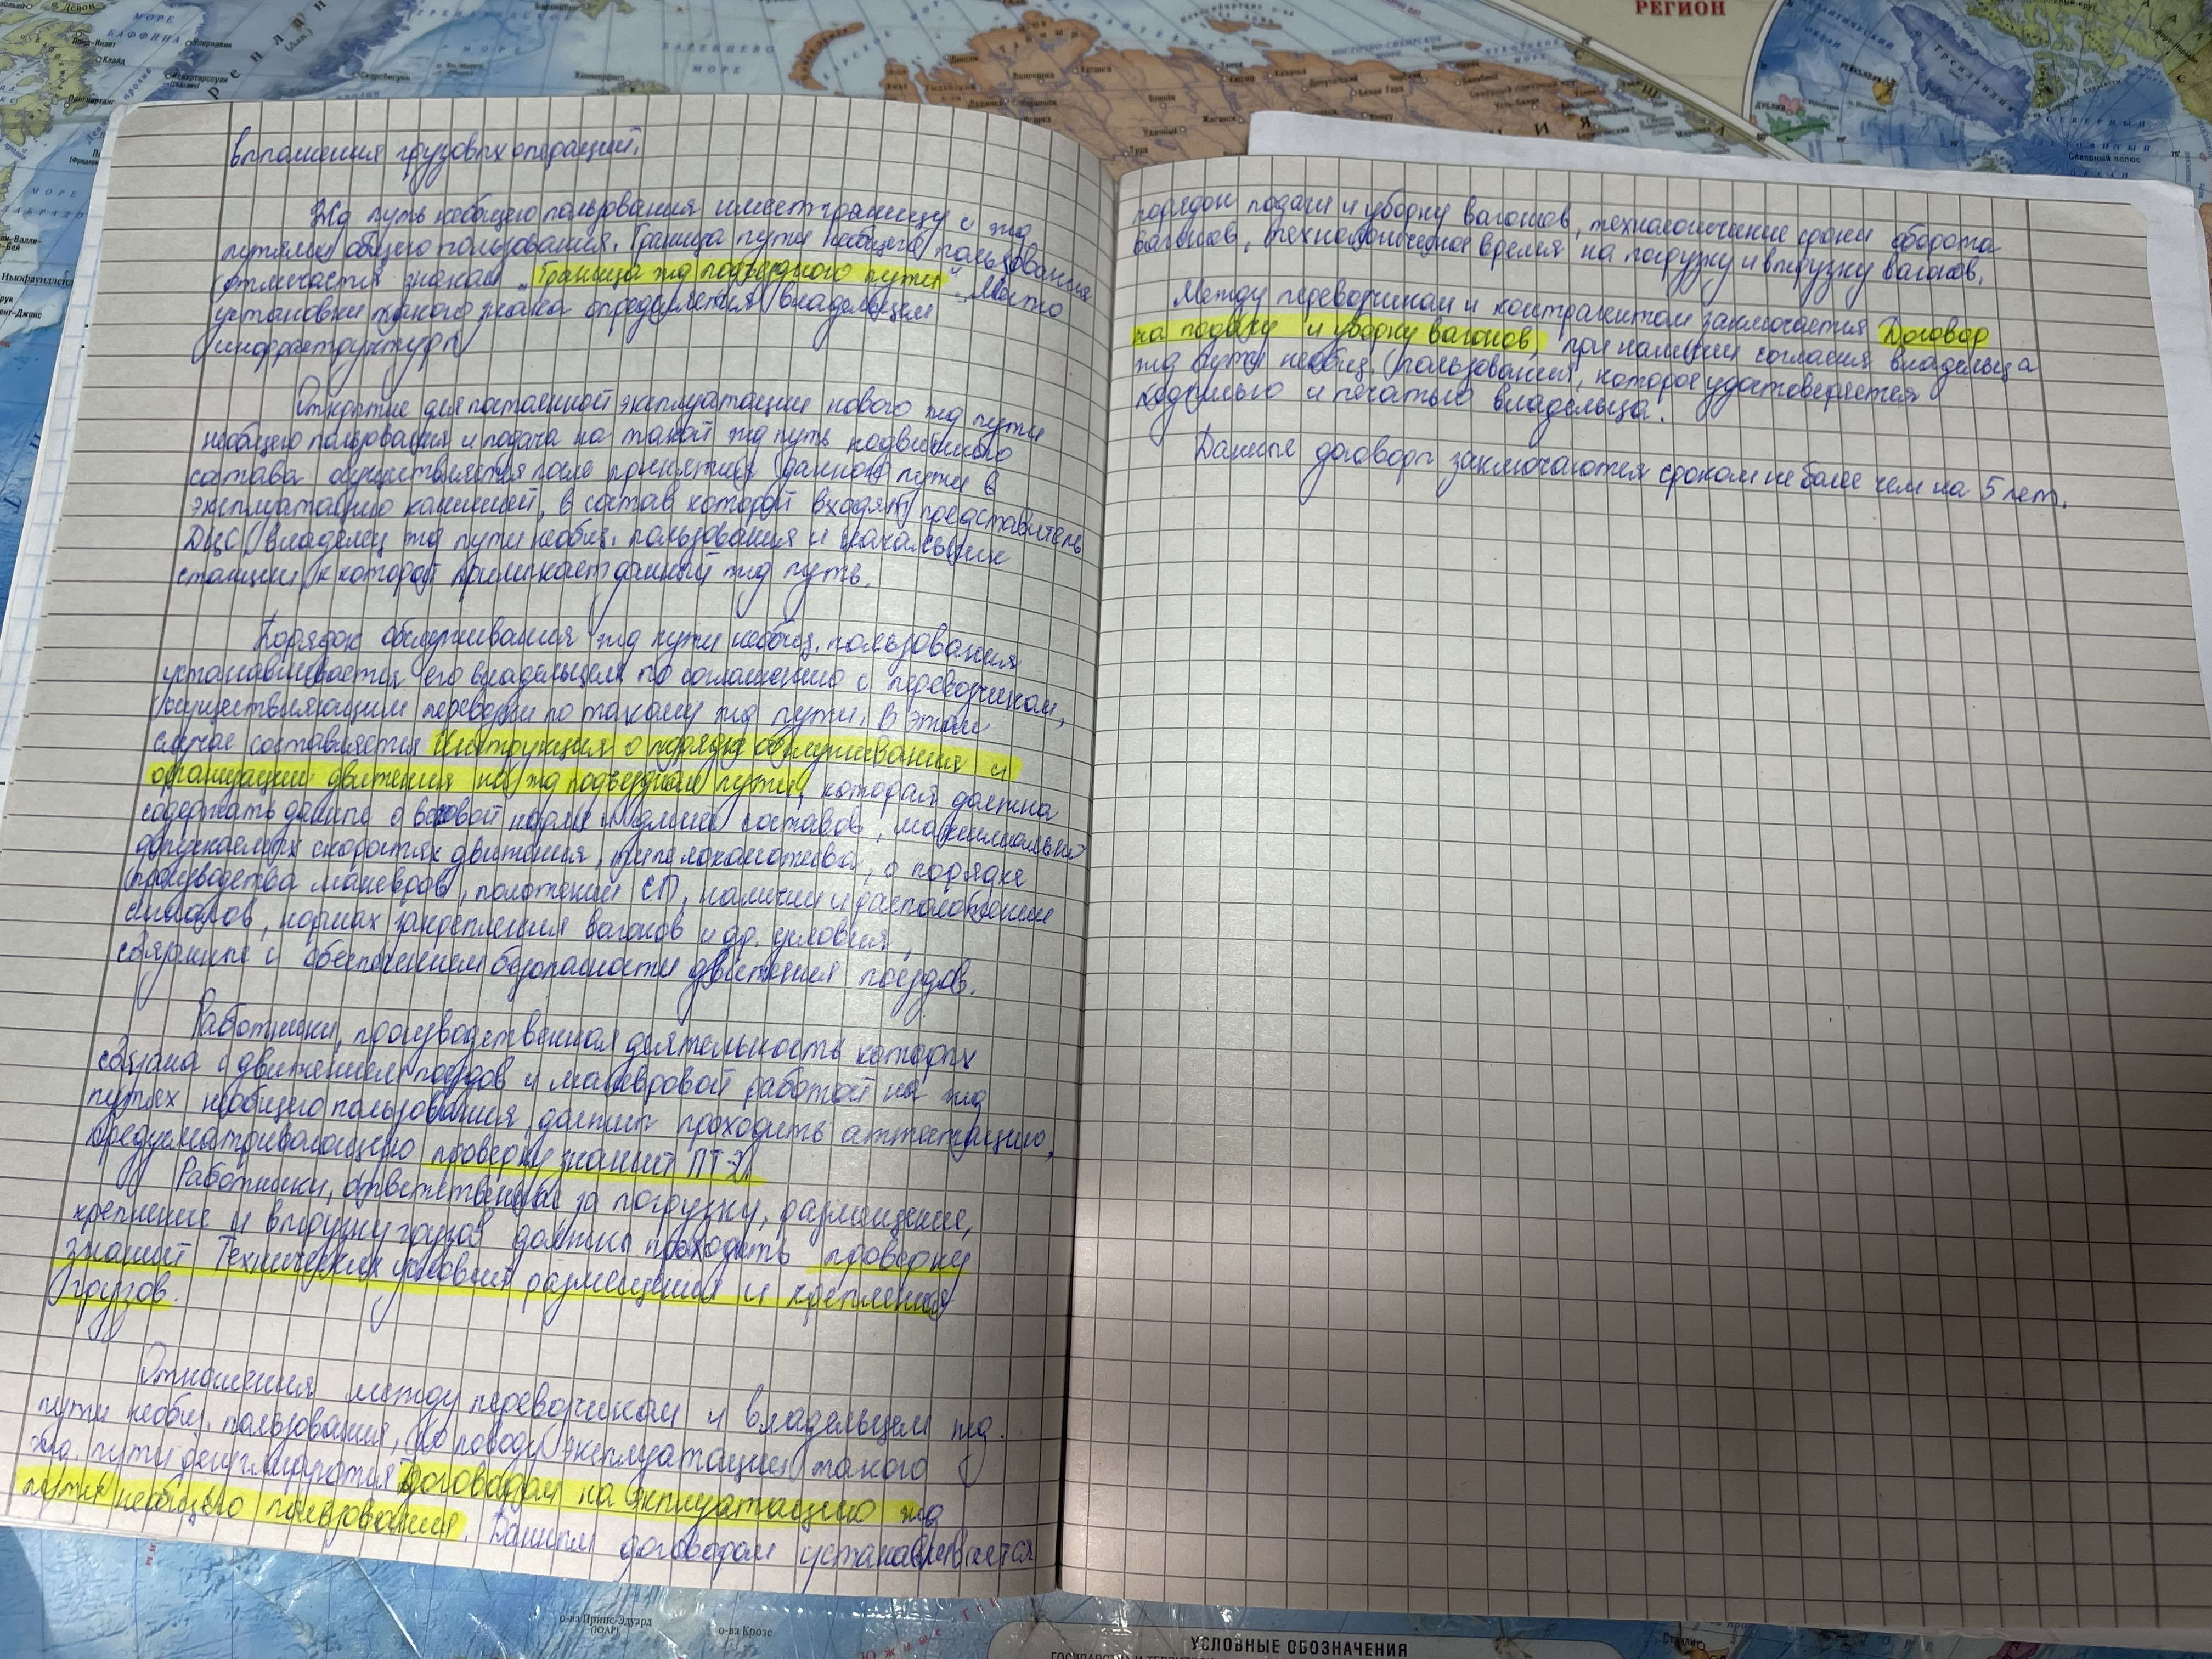 РЕГИОН
БАРЕНЦЕВО
МОРЕ
выполнения грузовых операций.
Жд путь необщего пользования имеет границу с жд
путями общего пользования. Граница пути необщего пользования
отмечается знаком „Граница жд подъездного пути". Место
установки такого знака определяется владельцем
инфраструктуры
Открытие для постоянной эксплуатации нового жд пути
необщего пользования и подача на такой жд путь подвижного
состава осуществляется после принятия данного пути в
эксплуатацию комиссией, в состав которой входят представитель
ДЦС, владелец жд пути необщ. пользования и начальник
станции к которой примыкает данный жд путь.
Порядок обслуживания жд пути необщ. пользования
устанавливается его владельцем по соглашению с перевозчиком,
осуществляющим перевозки по такому жд пути. В этом
случае составляется Инструкция о порядке обслуживания и
организации движения на жд подъездном пути, которая должна
содержать данные о весовой норме и длине составов, максимально
допускаемых скоростях движения, типе локомотива, о порядке
производства маневров, положении СП, наличии и расположении
сигналов, нормах закрепления вагонов и др. условия,
связанные с обеспечением безопасности движения поездов.
Работники, производственная деятельность которых
связана с движением поездов и маневровой работой на жд
путях необщего пользования, должны проходить аттестацию,
предусматривающую проверку знаний ПТЭ.
Работники, ответственные за погрузку, размещение,
крепление и выгрузку грузов должны проходить проверку
знаний Технических условий размещения и крепления
грузов.
Отношения между перевозчиком и владельцем жд.
пути необщ. пользования, по поводу эксплуатации такого
жд. пути регулируются Договором на эксплуатацию жд
пути необщего пользования. Данным договором устанавливается
порядок подачи и уборку вагонов, технологические сроки оборота
вагонов, технологическое время на погрузку и выгрузку вагонов.
Между перевозчиком и контрагентом заключается Договор
на подачу и уборку вагонов, при наличии согласия владельца
жд пути необщ. пользования, которое удостоверяется
подписью и печатью владельца.
Данные договоры заключаются сроком не более чем на 5 лет.
о-ва Принс-Эдуард
(ЮАР)
о-ва Крозе
УСЛОВНЫЕ ОБОЗНАЧЕНИЯ